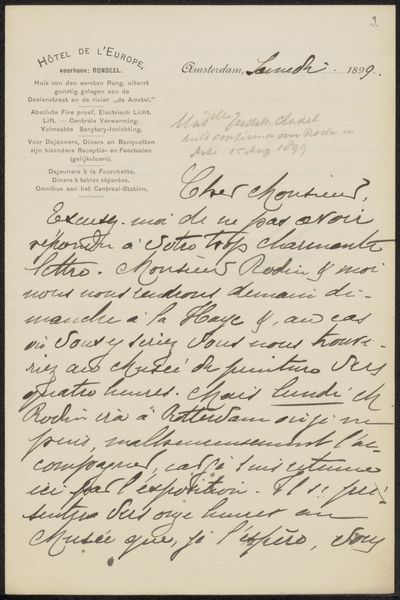 3.
HÔTEL DE L'EUROPE,
voorheen: RONDEEL.
Huis van den eersten Rang, uiterst
gunstig gelegen aan de
Doelenstraat en de rivier „de Amstel."
Absolute Fire proof, Electrisch Licht.
Lift. — Centrale Verwarming.
Volmaakte Sanytary-Inrichting.
Voor Dejeuners, Diners en Banquetten
zijn bizondere Receptie- en Feestzalen
(gelijkvloers).
Déjeuners à la Fourchette.
Diners à tables séparées.
Omnibus aan het Centraal-Station.
Amsterdam, Samedi 1899.
Mad elle Judith Cladel
hield conférence over Rodin in
Arti 15 Aug 1899
Cher Monsieur,
Excusez-moi de ne pas avoir
répondu à votre trop charmante
lettre. Monsieur Rodin & moi
nous nous rendrons demain di-
manche à la Haye &, au cas
où vous y seriez vous nous trouve-
riez au Musée de peinture vers
quatre heures. Mais lundi M
Rodin ira à Rotterdam où je ne
puis, malheureusement l'ac-
compagner, car je suis retenue
ici par l'exposition. Il se pré-
sentera vers onze heures au
Musée que, je l'espère, vous